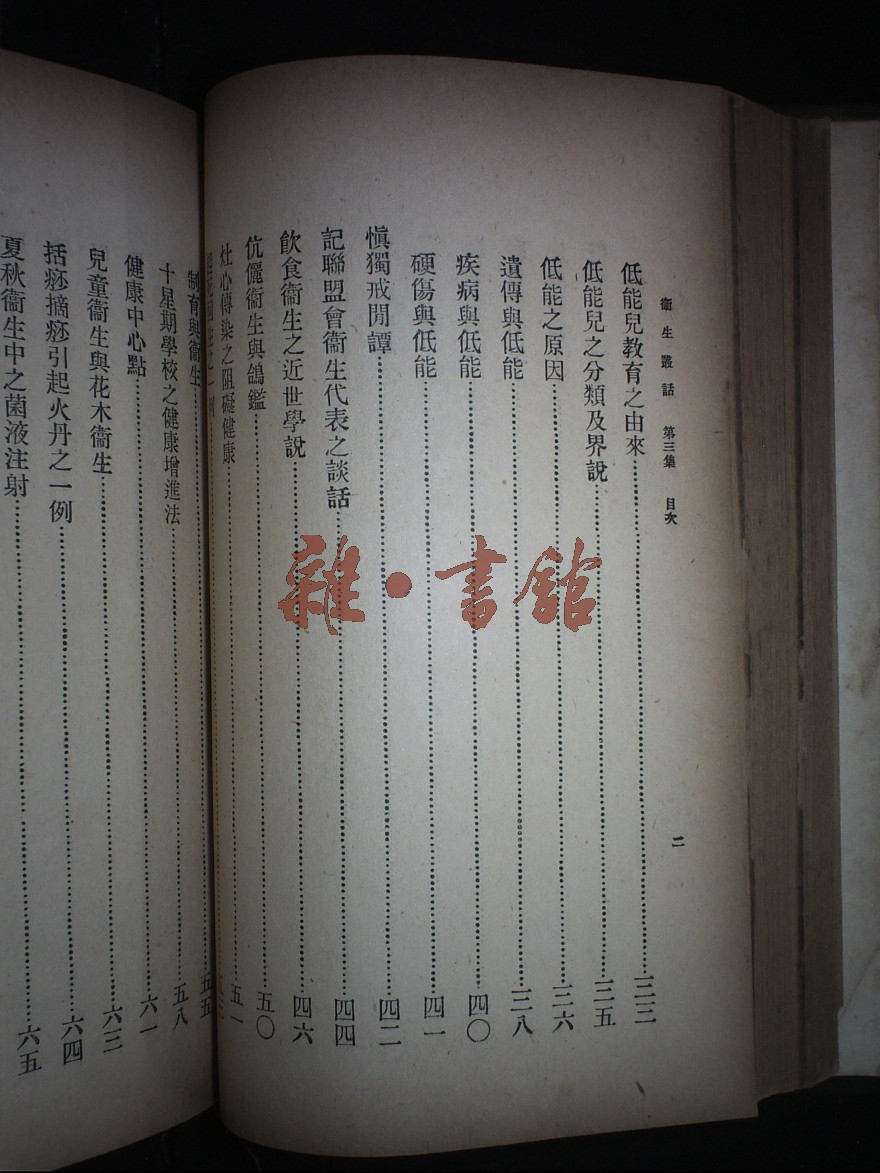 衞生叢話 第三集 目次
二
低能兒教育之由來……三三
低能兒之分類及界說……三五
低能之原因……三六
遺傳與低能……三八
疾病與低能……四〇
硬傷與低能……四一
愼獨戒閒譚……四二
記聯盟會衞生代表之談話……四四
飲食衞生之近世學說……四六
伉儷衞生與鴿鑑……五〇
灶心傳染之阻礙健康……五一
制育與衞生……五五
十星期學校之健康增進法……五八
健康中心點……六一
兒童衞生與花木衞生……六三
括痧摘痧引起火丹之一例……六四
夏秋衞生中之菌液注射……六五
雜·書舘